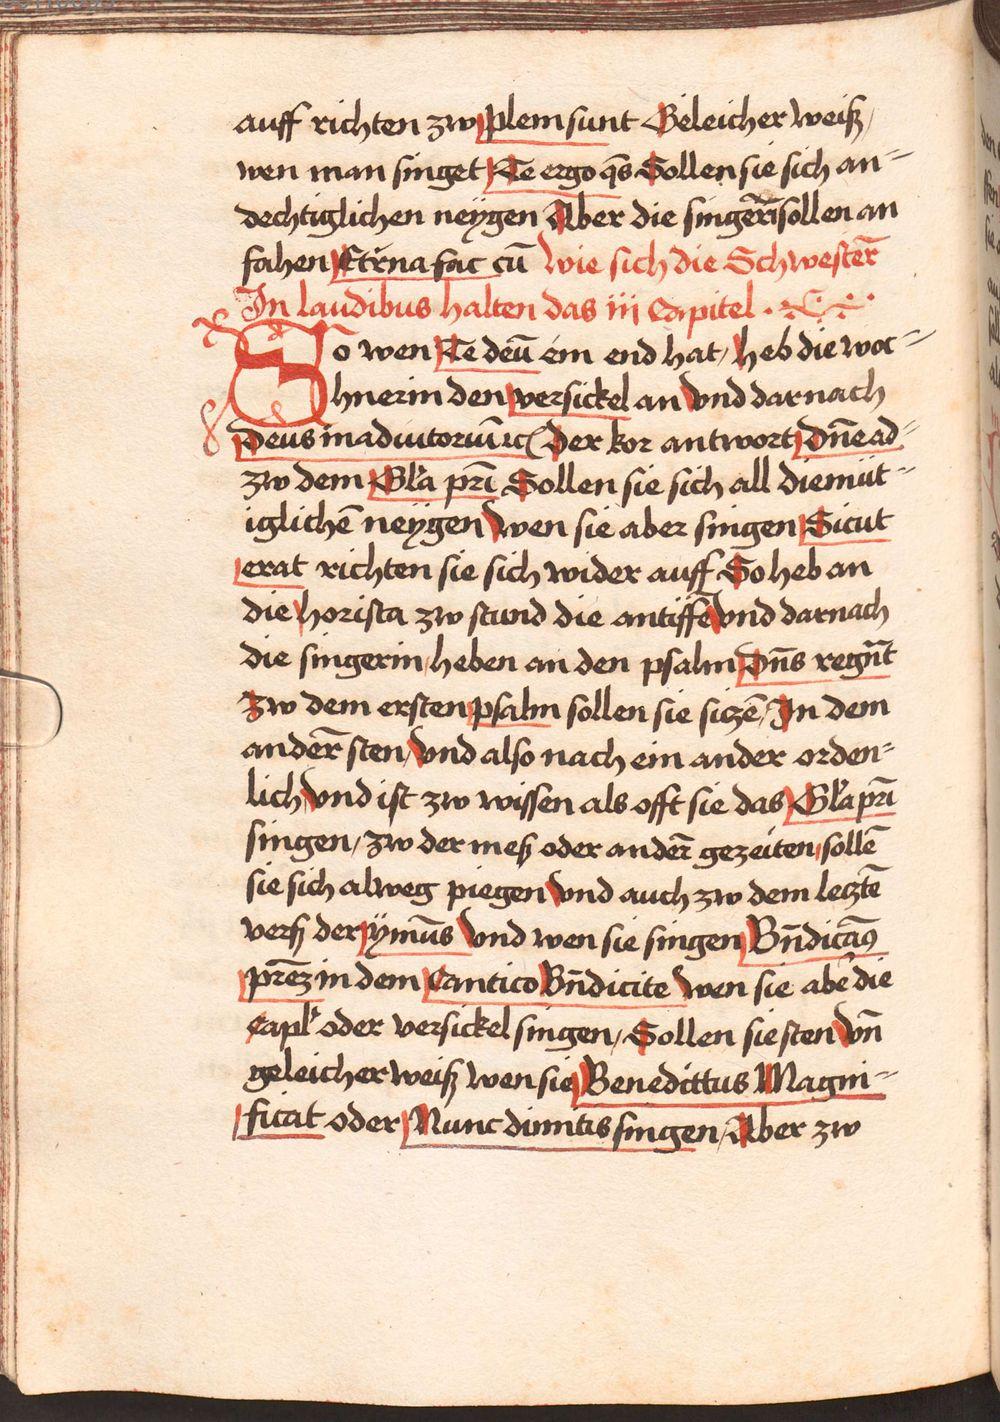 auff richten zw plem sunt Geleicher weiß /
wen man singet Te ergo q̄s Sollen sie sich an=
dechtiglichen neÿgen Aber die singeri̅ sollen an
fahen Et̅rna fac cū Wie sich die Schwester̅
In laudibus halten das iij Capitel ·
So wen Te deū ein end hat / heb die woc=
hnerin den versickel an Vnd darnach
Deus in adiutoriū ꝛc Der kor antwort Dn̅e ad=
zw dem Gl'a pr̅i Sollen sie sich all diemüt=
iglichē neÿgen Wen sie aber singen Sicut
erat richten sie sich wider auff So heb an
die horista zw stund die antiffē Vnd darnach
die singerin heben an den psalm Dn̅s regn̅t
Zw dem ersten psalm sollen sie siczē / In dem
ander̅ sten / Vnd also nach ein ander orden=
lich Vnd ist zw wissen als offt sie das Gl'a pr̅i
singen / zw der meß oder ander̅ gezeiten / sollē
sie sich alweg piegen Vnd auch zw dem lecztē
verß der ÿmn̄s Vnd wen sie singen Bn̅dicāꝰ
pr̅eꝫ in dem Cantico Bn̅dicite Wen sie abe̕ die
Capl' oder versickel singen / Sollen sie sten Vn̅
geleicher weiß wen sie Benedittus Magni=
ficat oder Nunc dimitis singen / Aber zw